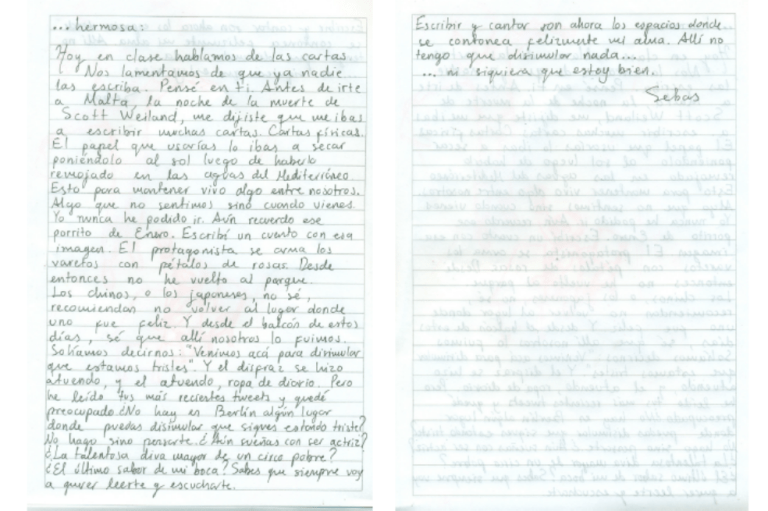 ...hermosa:
Hoy en clase hablamos de las cartas.
Nos lamentamos de que ya nadie
las escriba. Pensé en ti. Antes de irte
a Malta, la noche de la muerte de
Scott Weiland, me dijiste que me ibas
a escribir muchas cartas. Cartas físicas.
El papel que usarías lo ibas a secar
poniéndolo al sol luego de haberlo
remojado en las aguas del Mediterráneo.
Esto para mantener vivo algo entre nosotros.
Algo que no sentimos sino cuando vienes.
Yo nunca he podido ir. Aún recuerdo ese
porrito de Enero. Escribí un cuento con esa
imagen. El protagonista se arma los
varetos con pétalos de rosas. Desde
entonces no he vuelto al parque.
Los chinos, o los japoneses, no sé,
recomiendan no volver al lugar donde
uno fue feliz. Y desde el balcón de estos
días, sé que allí nosotros lo fuimos.
Solíamos decirnos: "Venimos acá para disimular
que estamos tristes". Y el disfraz se hizo
atuendo, y el atuendo, ropa de diario. Pero
he leído tus más recientes tweets y quedé
preocupado ¿No hay en Berlín algún lugar
donde puedas disimular que sigues estando triste?
No hago sino pensarte. ¿Aún sueñas con ser actriz?
¿La talentosa diva mayor de un circo pobre?
¿El último sabor de mi boca? Sabes que siempre voy
a querer leerte y escucharte.
Escribir y cantar son ahora los espacios donde
se contonea felizmente mi alma. Allí no
tengo que disimular nada...
... ni siquiera que estoy bien.
Sebas